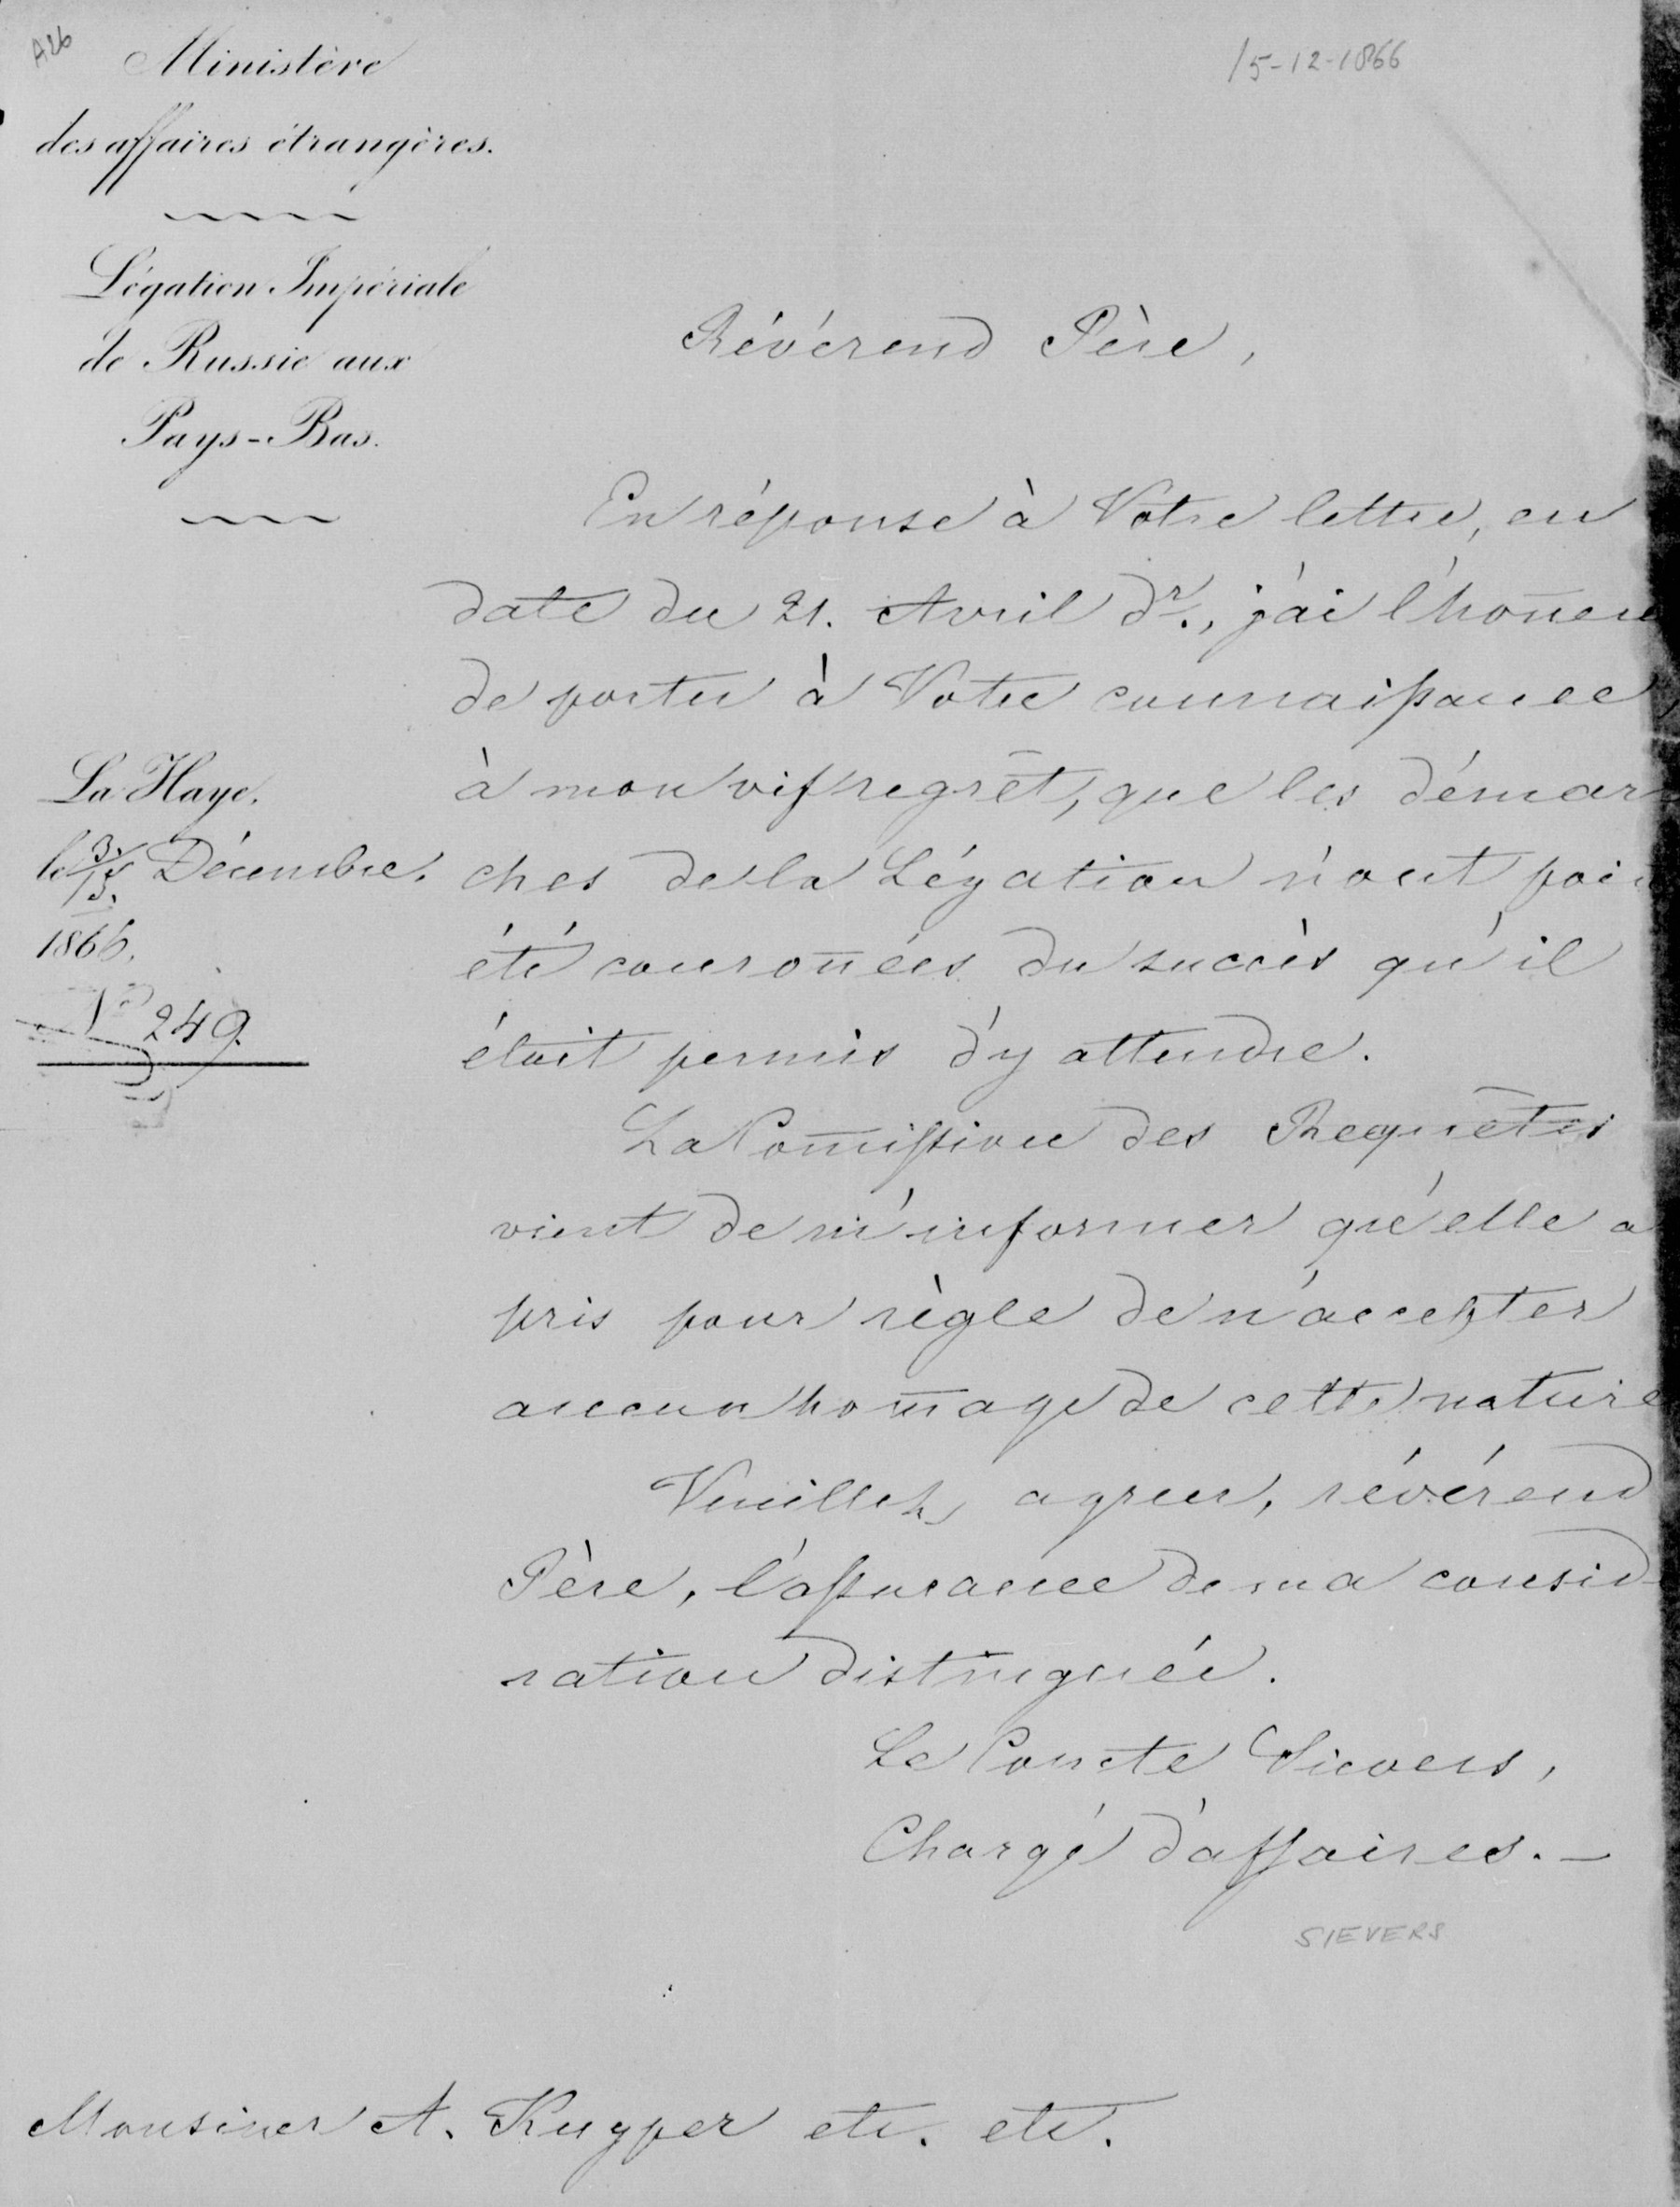 A26
15-12-1866
Ministère
des affaires étrangères.
Légation Impériale
de Russie aux
Pays-Bas.
La Haye,
le 3./15. Décembre.
1866.
No 249.
Révérend Père,
En réponse à Votre lettre, en
date du 21. Avril dr., j'ai l'hon̄eu
de porter à Votre connaissance,
à mon vif regrêt, que les démar
ches de la Légation n'ont poin
été couron̄ées du succès qu'il
était permis d'y attendre.
La Com̄ission des Requêtes
vient de m'informer qu'elle a
pris pour règle de n'accepter
aucun hom̄age de cette nature
Veuillez agréer, révérend
Père, l'assurance de ma consid
ration distinguée.
Le Comte Sievers,
Chargé d'affaires. —
SIEVERS
Monsieur A. Kuyper etc. etc.